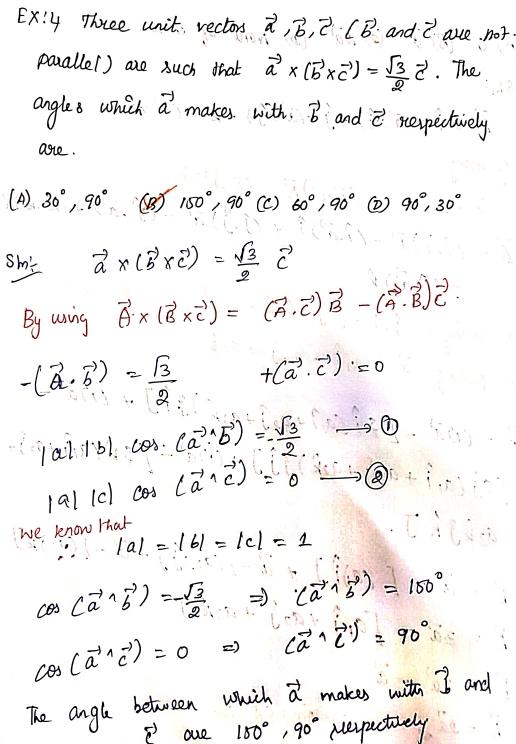 EX:4 Three unit vectors a⃗, b⃗, c⃗ (b⃗ and c⃗ are not
parallel) are such that a⃗ × (b⃗ × c⃗) = √3/2 c⃗. The
angles which a⃗ makes with b⃗ and c⃗ respectively
are.
(A) 30°, 90° (B) 150°, 90° (C) 60°, 90° (D) 90°, 30°
Sol:- a⃗ × (b⃗ × c⃗) = √3/2 c⃗
By using A⃗ × (B⃗ × c⃗) = (A⃗.c⃗) B⃗ - (A⃗.B⃗) c⃗.
-(a⃗.b⃗) = √3/2 +(a⃗.c⃗) = 0
|a| |b| cos (a⃗^b⃗) = -√3/2 → ①
|a| |c| cos (a⃗^c⃗) = 0 → ②
we know that
∴ |a| = |b| = |c| = 1
cos (a⃗^b⃗) = -√3/2 ⇒ (a⃗^b⃗) = 150°
cos (a⃗^c⃗) = 0 ⇒ (a⃗^c⃗) = 90°
The angle between which a⃗ makes with b⃗ and
c⃗ are 150°, 90° respectively